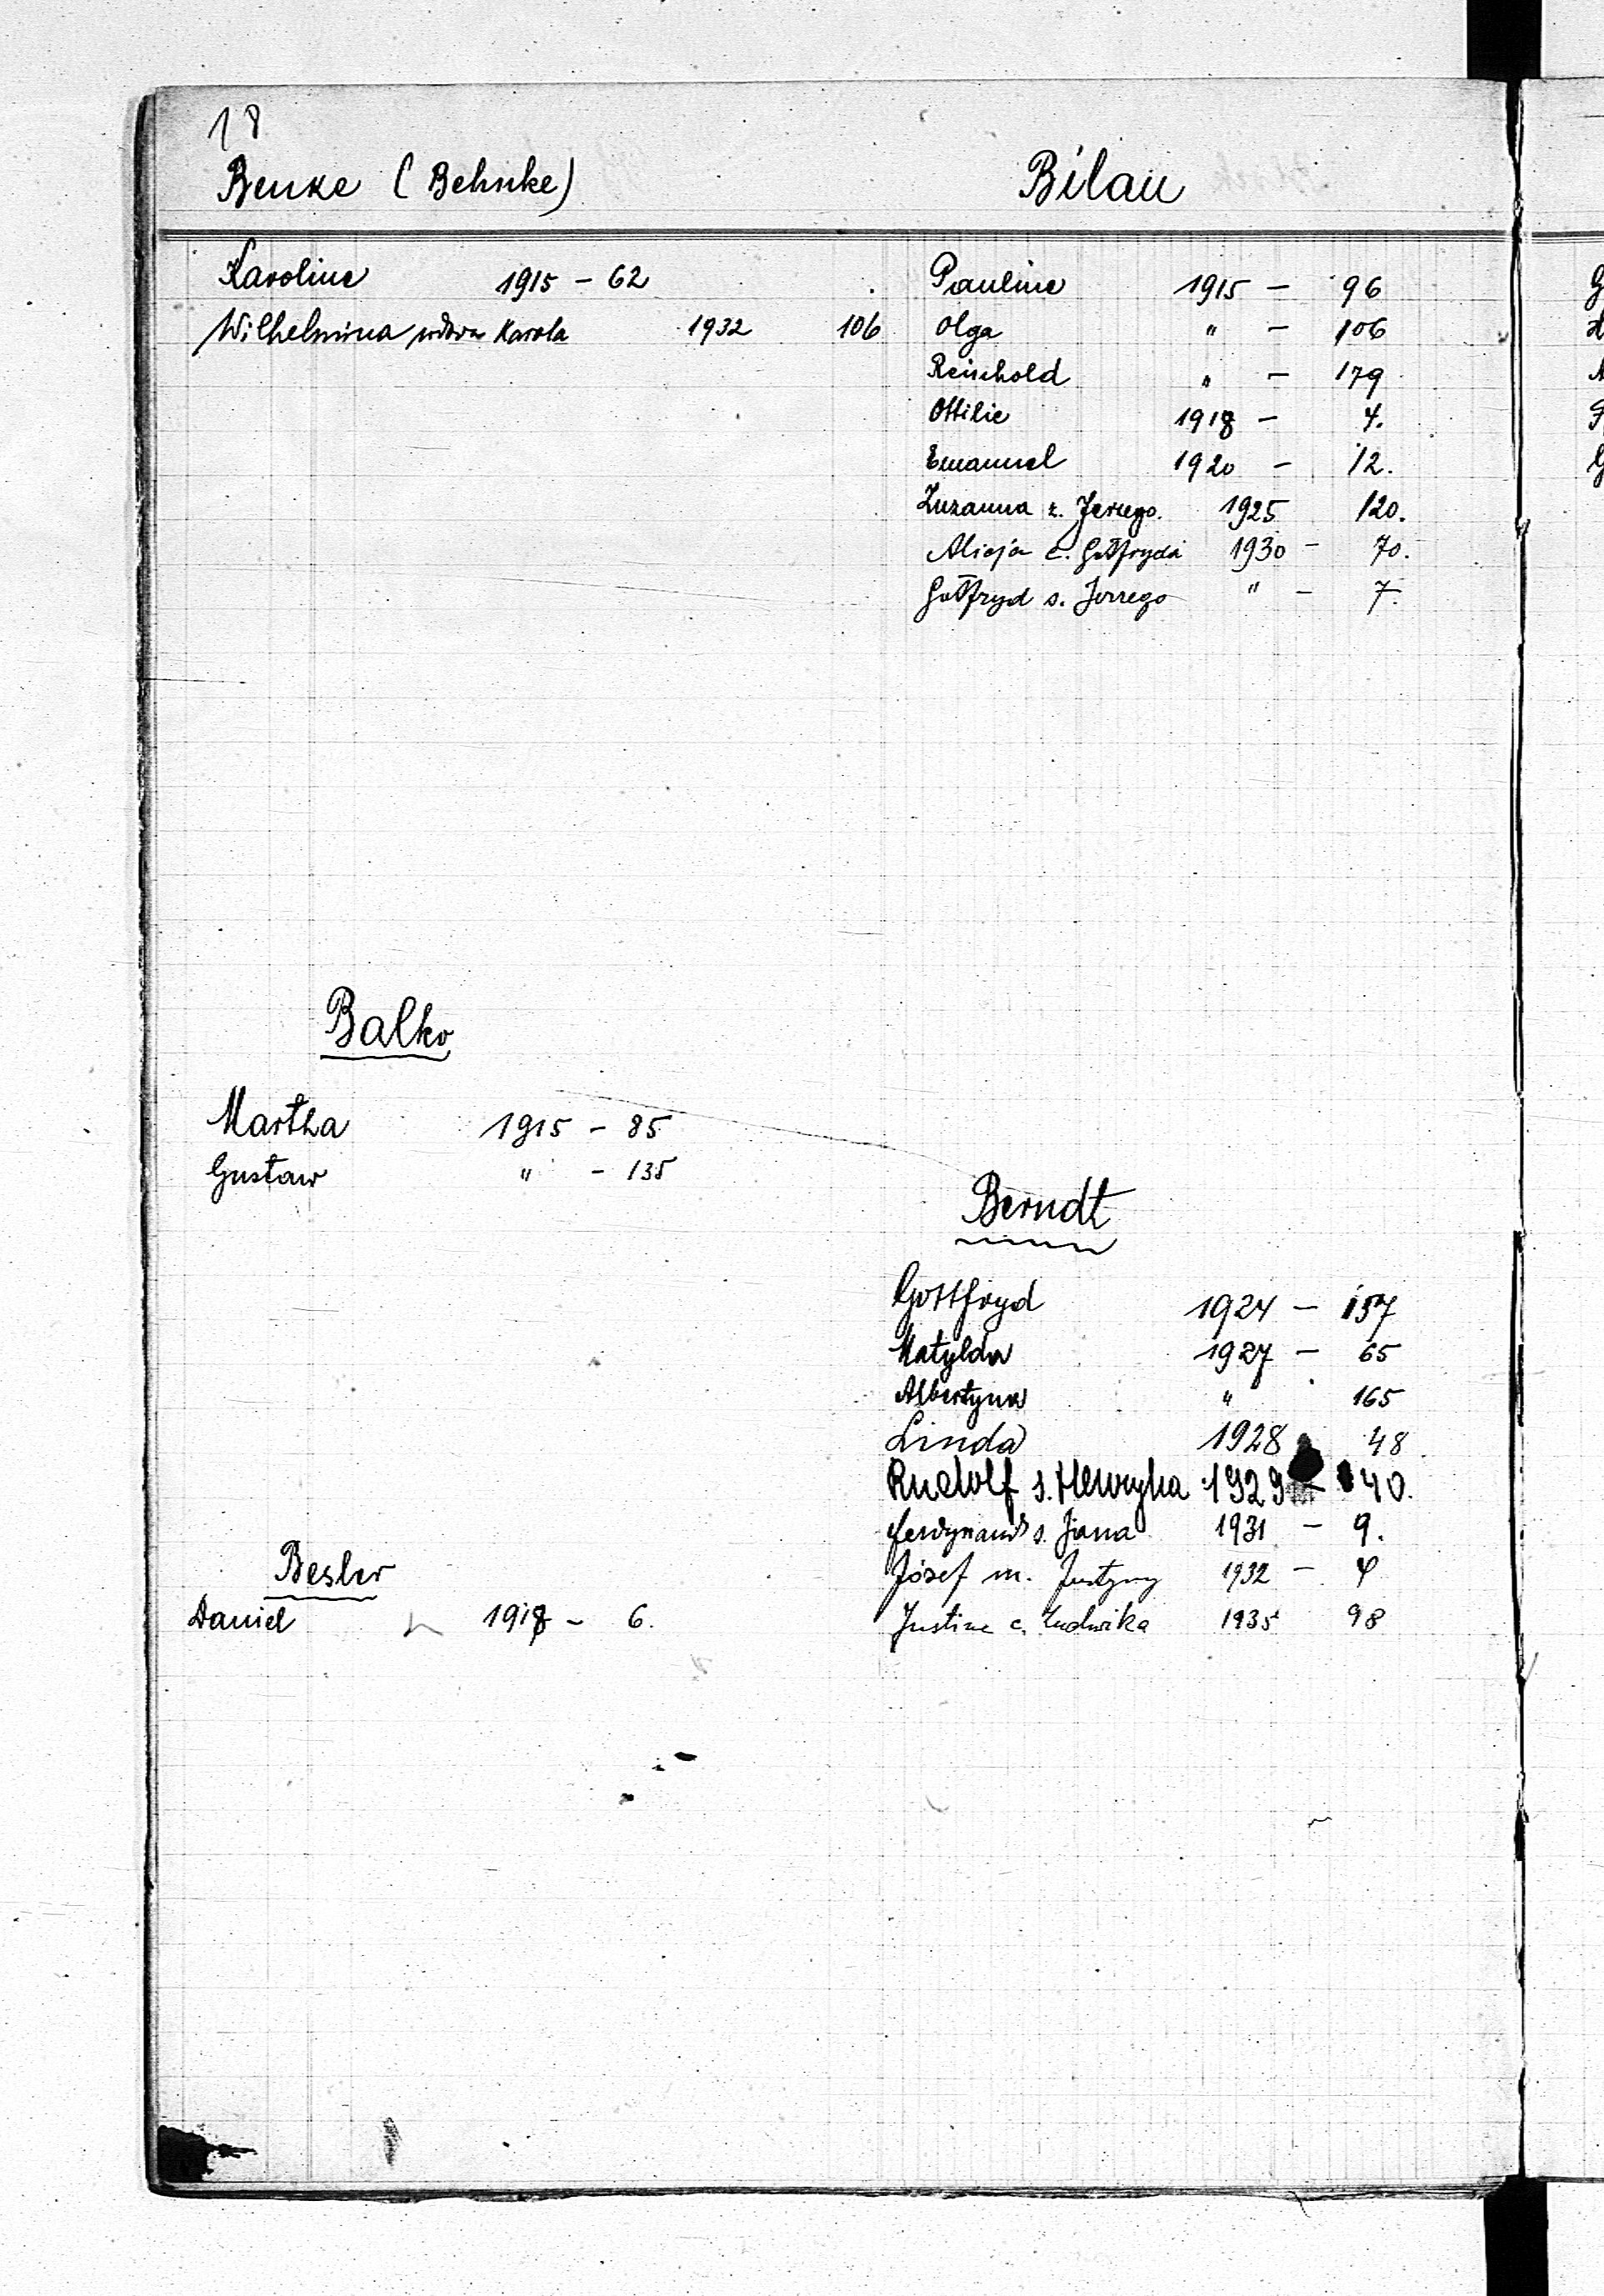 18
Benke (Behnke)
Karoline 1915 - 62
Wilhelmina wdowa Karola 1932 106
Balko
Martha 1915 - 85
Gustaw " - 135
Besler
Daniel 1918 - 6.
Bilau
Pauline 1915 - 96
Olga " - 106
Reinhold " - 179
Ottilie 1918 - 4.
Emanuel 1920 - 12.
Zuzanna ż. Jerzego. 1925 120.
Alicja c. Gottfryda 1930 - 70.
Gottfryd s. Jerzego " - 7.
Berndt
Gottfryd 1924 - 157
Matylda 1927 - 65
Albertyna " 165
Linda 1928 48
Rudolf s. Henryka 1929 - 40.
Ferdynand s. Jana 1931 - 9.
Józef m. Justyny 1932 -
Justine c. Ludwika 1935 98